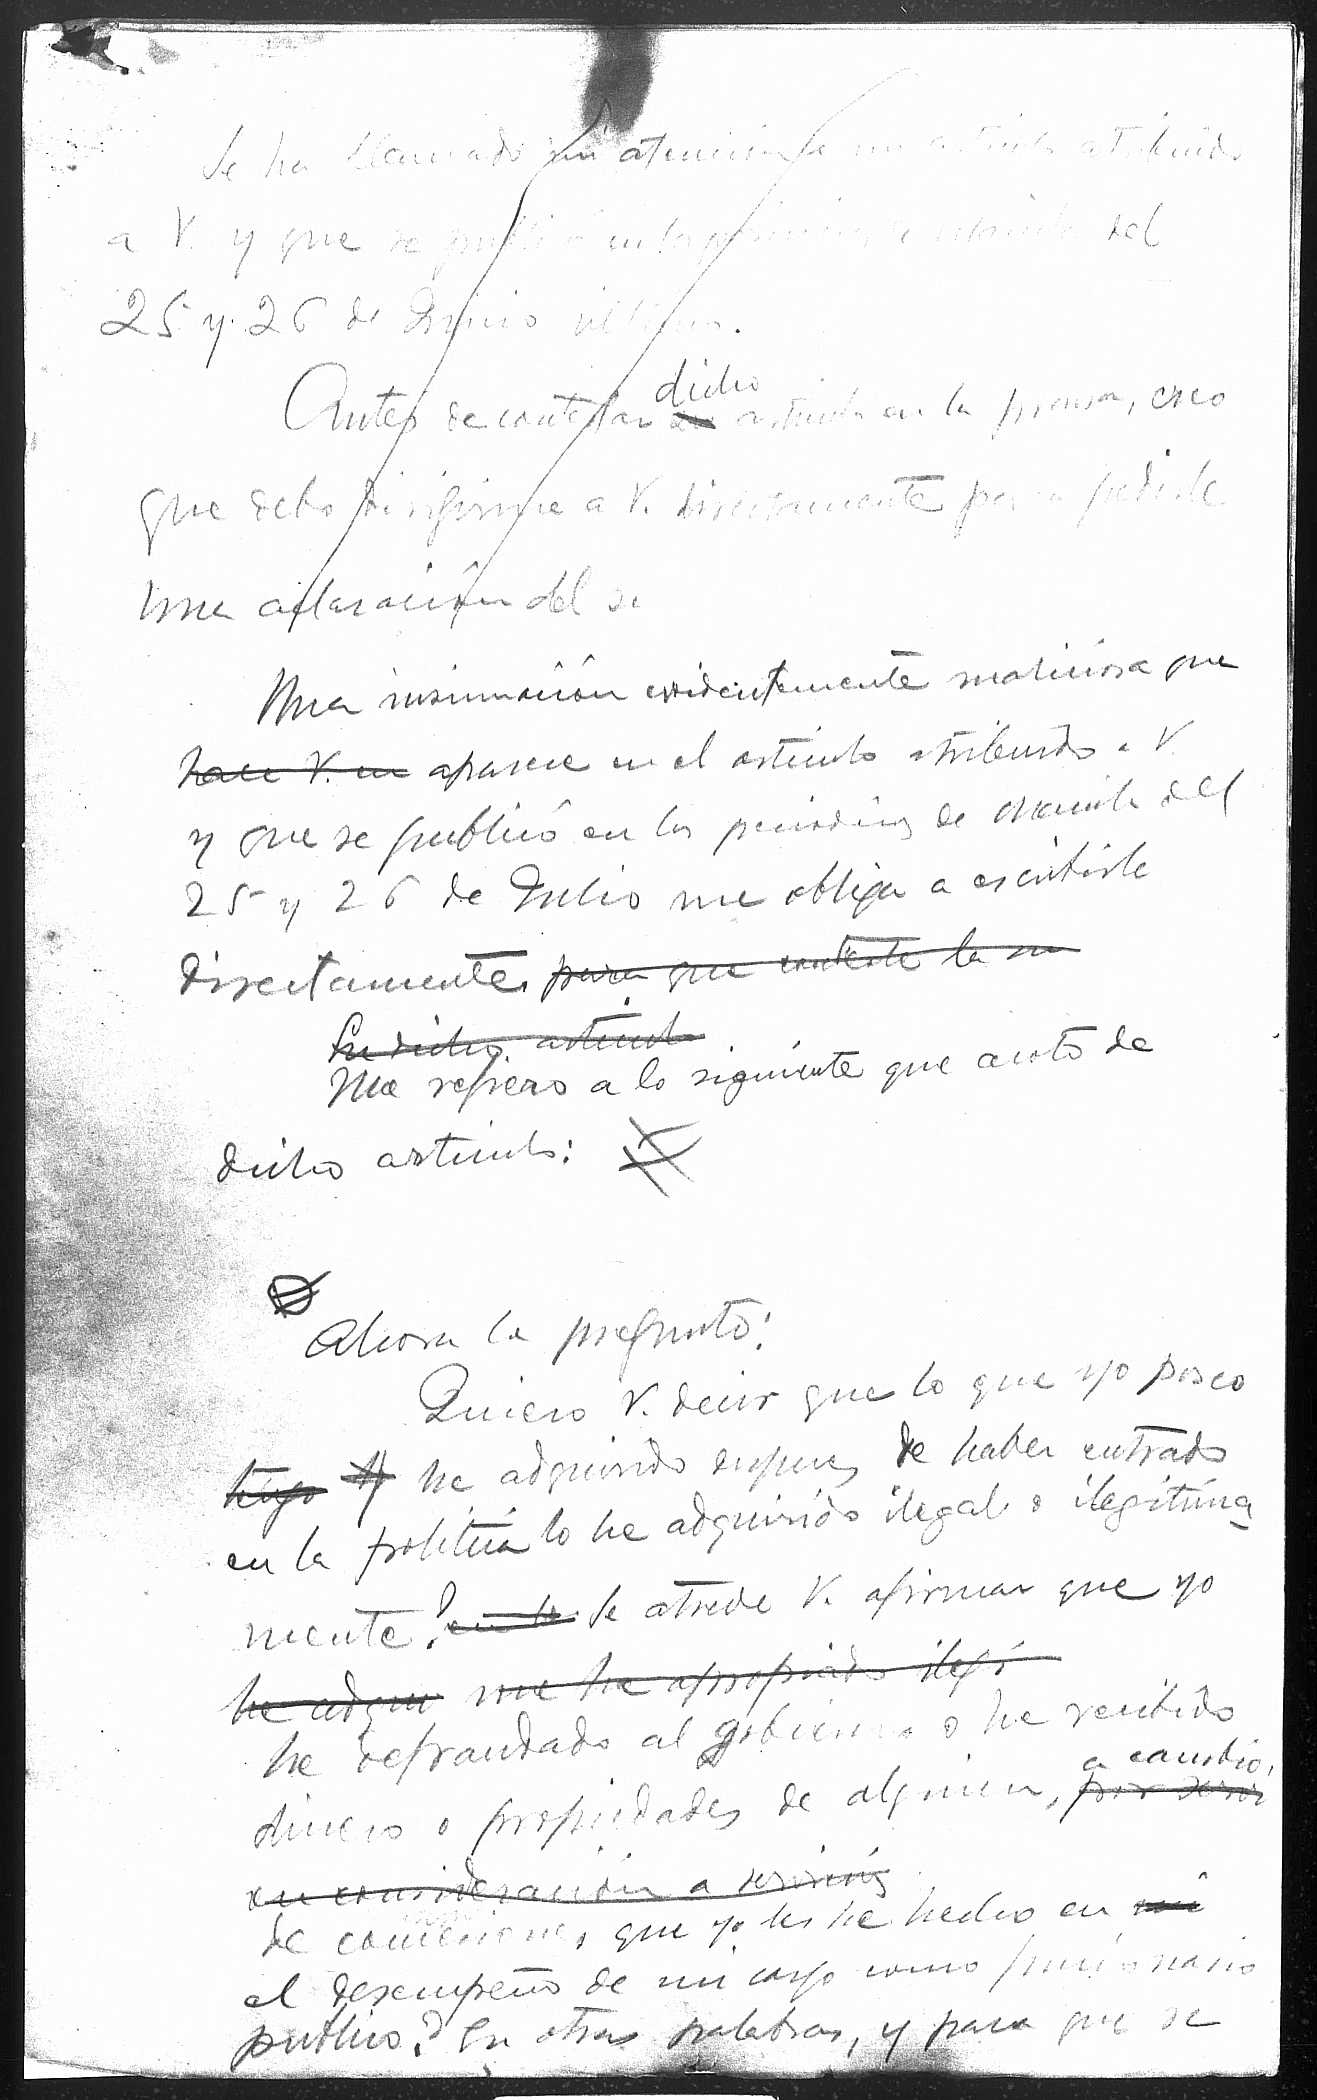 Se ha llamado mi atención a un artículo atribuido
a V. y que se publicó en los periódicos de Manila del
25 y 26 de Junio último.
dicho
Antes de contestar artículo en la prensa, creo
que debo dirigirme a V. directamente para pedirle
una aclaración del si
Una insinuación evidentemente maliciosa que
hace V. en aparece en el artículo atribuido a V.
y que se publicó en los periódicos de Manila del
25 y 26 de Julio me obliga a escribirle
directamente. para que conteste la su
En dicho artículo
Me refiero a lo siguiente que acoto de
dicho artículo:
Ahora le pregunto:
Quiere V. decir que lo que yo poseo
tengo y he adquirido despues de haber entrado
en la politica lo he adquirido ilegal o ilegitima
mente? en la Se atreve V. afirmar que yo
he adqui me he apropiado ilegi
he defraudado al gobierno o he recibido
a cambio,
dinero o propiedades de alguien, por servi
en consideración a servicios
de concesiones que yo les he hecho en mi
el desempeño de mi cargo como funcionario
publico? En otras palabras, y para que se